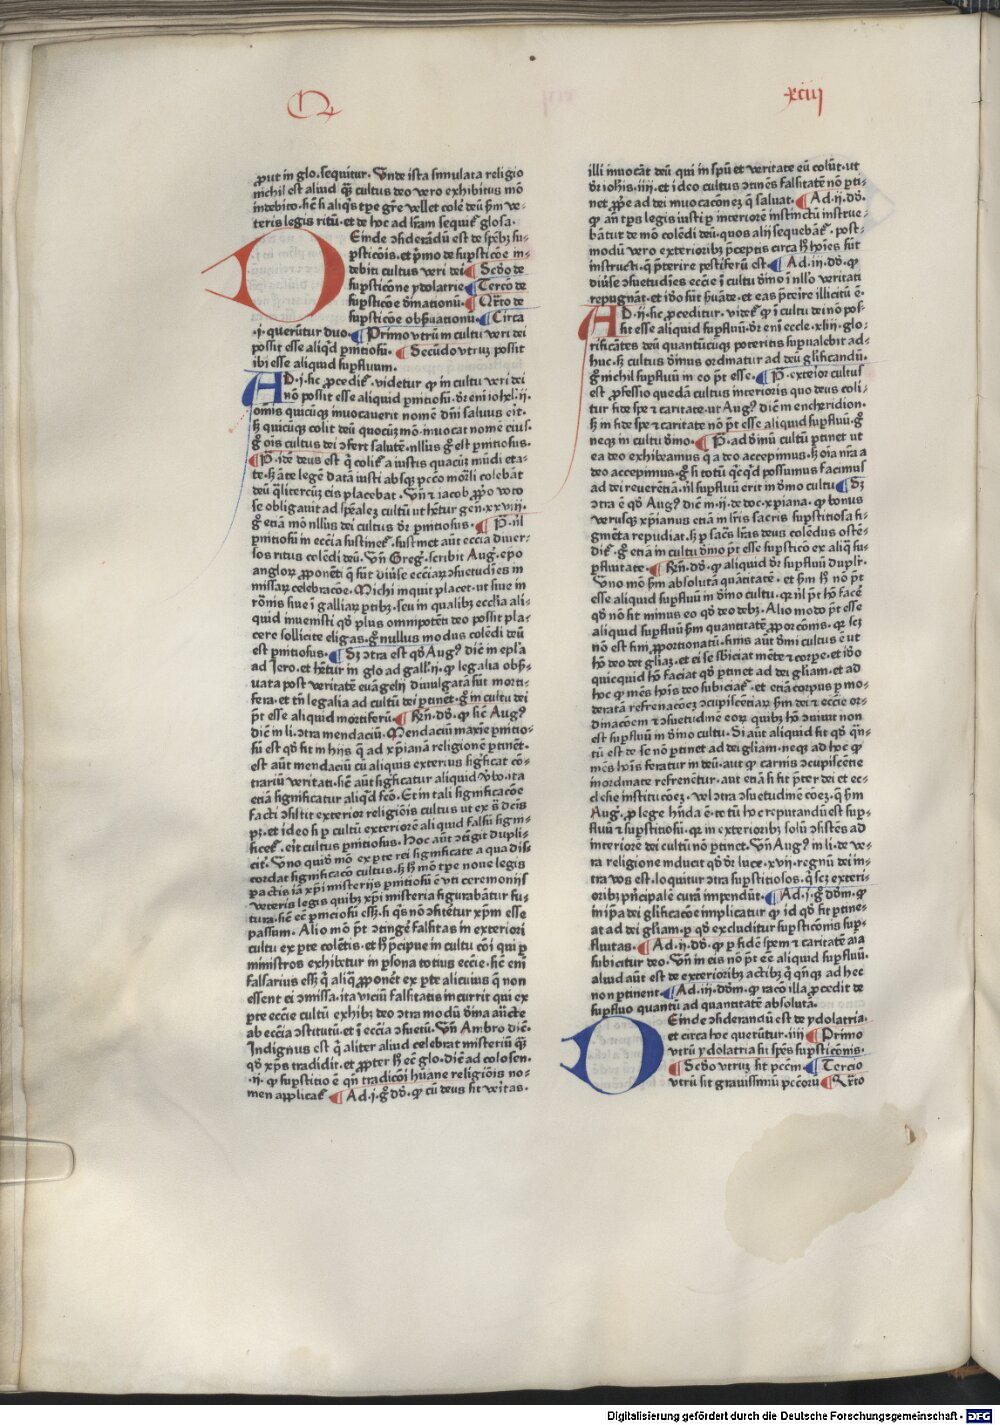 Q xciij
ꝓut in glo. sequitur. Vnde ista simulata religio
nichil est aliud qͣꝫ cultus deo vero exhibitus mō
indebito. sic̄ si aliqͥs tp̄e gr̄e vellet cole̅ deū ẜm ve⸗
teris legis ritū. et de hoc ad lr̄am sequiť glosa.
DEinde ↄsiderādū est de spēbꝫ su⸗
pͥsticōis. et pͥmo de sup̱sticōe in⸗
debiti cultus veri dei ¶ Secūdo de
sup̱sticōne ydolatrie ¶ Tercō de
sup̱sticōe dīnationū. ¶ Qͣrto de
sup̱sticōe obẜuationū. ¶ Circa
.j. querūtur duo. ¶ Primo vtrū in cultu veri dei
possit esse aliqͥd p̱nitiosū. ¶ Secūdo vtruꝫ possit
ibi esse aliquid sup̱fluum.
AD .j. sic ꝓcediť. videtur ꝙ in cultu veri dei
nō possit esse aliquid p̱nitiosū. dr̄ enī iohel. ij.
om̄is quicūqꝫ inuocauerit nomē dn̄i saluus erit.
sꝫ quicūqꝫ colit deū quocūqꝫ mō. inuocat nomē eius.
gͦ om̄s cultus dei ↄfert salutē. nllus gͦ est p̱nitiosus.
¶ P̄. idē deus est qͥ coliť a iustis quacūqꝫ mūdi eta⸗
te. sꝫ āte legē datā iusti absqꝫ pcc̄o mor̄li colebāt
deū qͣlitercūqꝫ eis placebat. Vn̄ ⁊ iacob ꝓpͥo voto
se obligauit ad spēalez cultū ut hētur gen. xxviij.
gͦ etiā mō nllus dei cultus dr̄ p̱nitiosus. ¶ P̄. nͥl
p̱nitiosū in ecc̄ia sustineť. sustinet aūt ecc̄ia diuer⸗
sos ritus colēdi deū. Vn̄ Greg. scribit Augꝰ. ep̄o
angloꝝ ꝓponēti qͥ sūt diūse ecc̄iaꝝ ↄsuetudines in
missarꝫ celebracōe. Michi inquit placet. ut siue in
rōnis siue ī galliaꝝ ꝑtibꝫ. seu in qualibꝫ ecclīa ali⸗
quid inuenisti qd̄ plus om̄ipotēti deo possit pla⸗
cere sollicite eligas. gͦ nullus modus colēdi deū
est p̱nitiosus. ¶ Sꝫ ↄtra est qd̄ Augꝰ dic̄ in ep̄la
ad Jero. et hētur in glo ad gall. ij. ꝙ legalia obẜ⸗
uata post veritatē euāgelij diuulgatā sūt morti⸗
fera. et tn̄ legalia ad cultū dei p̱tinet. gͦ in cultu dei
pōt esse aliquid mortiferū. ¶ Rn̄. dd̄. ꝙ sic̄ Augꝰ
dic̄ in li. ↄtra mendaciū. Mendaciū maxīe p̱nitio⸗
sū est qd̄ sit in hijs qͥ ad xp̄ianā religionē p̱tinēt.
est aūt mendaciū cū aliquis exterius sigͥficat cō⸗
trariū veritati. sic̄ aūt sigͥficatur aliquid v̄bo. ita
etiā significatur aliqͥd fc̄o. Et in tali significacōe
facti ↄsistit exterior religiōis cultus ut ex sͣ dc̄is
pꝫ. et ideo si ꝑ cultū exteriorē aliquid falsū signi⸗
ficeť. eīt cultus p̱nitiosus. hoc aūt ↄtigit dupli⸗
cit̄. Vno quid̄ mō ex ꝑte rei significate a qua dis⸗
cordat significacō cultus. sꝫ hͦ mō tp̄e noue legis
ꝑactis iā xp̄i misterijs p̱nitiosū ē vti ceremonijs
veteris legis quibꝫ xp̄i misteria figurabātur fu⸗
tura. sic̄ eē p̱niciosū essꝫ. si qͥs nō ↄfitētur xp̄m esse
passum. Alio mō pōt ↄtingē falsitas in exteriori
cultu ex ꝑte colētis. et hͦ pͥncipue in cultu cōi qui ꝑ
ministros exhibetur in ꝑsona totius ecc̄ie. sic̄ enī
falsarius essꝫ qͥ aliqͣ ꝓponēt ex ꝑte alicuius qͥ non
essent ei ↄmissa. ita viciū falsitatis incurrit qui ex
ꝑte ecc̄ie cultū exhibꝫ deo ↄtra modū dīna auc̄te
ab ecc̄ia ↄstitutū. et ī ecc̄ia ↄsuetū. Vn̄ Ambro dic̄.
Indignus est qͥ aliter aliud celebrat misteriū qͣꝫ
qd̄ xp̄s tradidit. et ꝓpter hͦ eē glo. dic̄ ad colosen.
.ij. ꝙ sup̱stitio ē qn̄ tradicōi hūane religiōis no⸗
men applicať ¶ Ad .j. gͦ dd̄. ꝙ cū deus sit v̄itas.
illi inuocāt deū qui in spū et veritate eū colūt. ut
dr̄ ioh̄is. iiij. et ideo cultus ↄtinēs falsitatē nō ꝑti⸗
net ꝓpͥe ad dei inuocacōneꝫ qͥ saluat. ¶ Ad .ij. dd̄.
ꝙ an̄ tp̄s legis iusti ꝑ interiorē instinctū instrue⸗
bātur de mō colēdi deū. quos alij sequebāť. post⸗
modū vero exterioribꝫ p̄ceptis circa hͦ hoīes sūt
instructi. qͥ p̄terire pestiferū est ¶ Ad .iij. dd̄. ꝙ
diūse ↄsuetudīes ecc̄ie ī cultu dīno ī nllo v̄itati
repugnāt. et iō sūt ẜuāde. et eas p̄terire illicitū ē.
AD .ij. sic ꝓceditur. videť ꝙ ī cultu dei nō pos⸗
sit esse aliquid sup̱fluū. dr̄ enī eccle. xliij. glo⸗
rificātes deū quantūcūqꝫ poteritis sup̱ualebit ad⸗
huc. sꝫ cultus dīnus ordīnatur ad deū glificandū.
gͦ nichil sup̱fluū in eo pōt esse. ¶ P̄. exterior cultus
est ꝓfessio quedā cultus interioris quo deus coli⸗
tur fide spe ⁊ caritate. ut Augꝰ dic̄ in encheridion.
sꝫ in fide spe ⁊ caritate nō pōt esse aliquid sup̱fluū. gͦ
neqꝫ in cultu dīno. ¶ P̄. ad dīnū cultū p̱tinet ut
ea deo exhibeamus qͥ a deo accepimus. sꝫ oīa nr̄a a
deo accepimus. gͦ si totū qͥcqͥd possumus facimus
ad dei reuerētiā. nͥl sup̱fluū erit in dīno cultu ¶ Sꝫ
ↄtra ē qd̄ Augꝰ dic̄ in. ij. de doc. xp̄iana. ꝙ bonus
verusqꝫ xp̄ianus etiā in lr̄is sacris sup̱stitiosa fi⸗
gmēta repudiat. sꝫ ꝑ sacͣs lr̄as deus colēdus ostē⸗
diť. gͦ etiā in cultu dīno pōt esse sup̱sticō ex aliqͣ su⸗
p̱fluitate. ¶ Rn̄. dd̄. ꝙ aliquid dr̄ sup̱fluū duplr̄.
Vno mō ẜm absolutā quātitatē. et ẜm hͦ nō pōt
esse aliquid sup̱fluū in dīno cultu. qꝛ nͥl pōt hō facē
qd̄ nō sit minus eo qd̄ deo debꝫ. Alio modo pōt esse
aliquid sup̱fluū ẜm quantitatē ꝓporcōnis. qꝛ scꝫ
nō est fini ꝓportionatū. finis aūt dīni cultus ē ut
hō deo det gliaꝫ. et ei se sbīciat mēte ⁊ corꝑe. et iō
quicquid hō faciat qd̄ p̱tinet ad dei gliam. et ad
hoc ꝙ mēs hoīs deo subiciať. et etiā corpus ꝑ mo⸗
deratā refrenacōeꝫ ↄcupiscētiaꝝ ẜm dei ⁊ ecc̄ie or⸗
dinacōem ⁊ ↄsuetudinē eoꝝ quibꝫ hō ↄuiuit non
est sup̱fluū in dīno cultu. Si aūt aliquid sit qd̄ qͣn⸗
tū est de se nō p̱tinet ad dei gliam. neqꝫ ad hoc ꝙ
mēs hoīs feratur in deū. aut ꝙ carnis ↄcupiscētie
inordinate refrenētur. aut etiā si sit p̄ter dei et ec⸗
clesie institucōeꝫ. vel ↄtra ↄsuetudinē cōeꝫ. qͥ ẜm
Augꝰ. ꝓ lege hn̄da ē. totū hoc reputandū est sup̱⸗
fluū ⁊ sup̱stitiosū. qꝛ in exterioribꝫ solū ↄsistēs ad
interiorē dei cultū nō p̱tinet. Vn̄ Augꝰ in li. de ve⸗
ra religione inducit qd̄ dr̄ luce. xvij. regnū dei in⸗
tra vos est. loquitur ↄtra sup̱stitiosos. qͥ scꝫ exteri⸗
oribꝫ pͥncipalē curā impendūt. ¶ Ad .j. gͦ ddm̄. ꝙ
in ip̄a dei glificacōe implicatur ꝙ id qd̄ fit p̱tine⸗
at ad dei gliam. ꝑ qd̄ excluditur sup̱sticōnis sup̱⸗
fluitas. ¶ Ad .ij. dd̄. ꝙ ꝑ fidē spem ⁊ caritatē aīa
subicitur deo. Vn̄ in eis nō pōt eē aliquid sup̱fluū.
aliud aūt est de exterioribꝫ actibꝫ qͥ qn̄qꝫ ad hec
non p̱tinent. ¶ Ad .iij. ddm̄. ꝙ racō illa ꝓcedit de
sup̱fluo quantū ad quantitatē absolutā.
DEinde ↄsiderandū est de ydolatria.
et circa hoc querūtur. iiij ¶ Primo
vtrū ydolatria sit spēs sup̱sticōnis.
¶ Secūdo vtruꝫ sit pcc̄m. ¶ Tercio
vtrū sit grauissimū pcc̄oꝝ ¶ Qͣrto
Digitalisierung gefördert durch die Deutsche Forschungsgemeinschaft - DFG